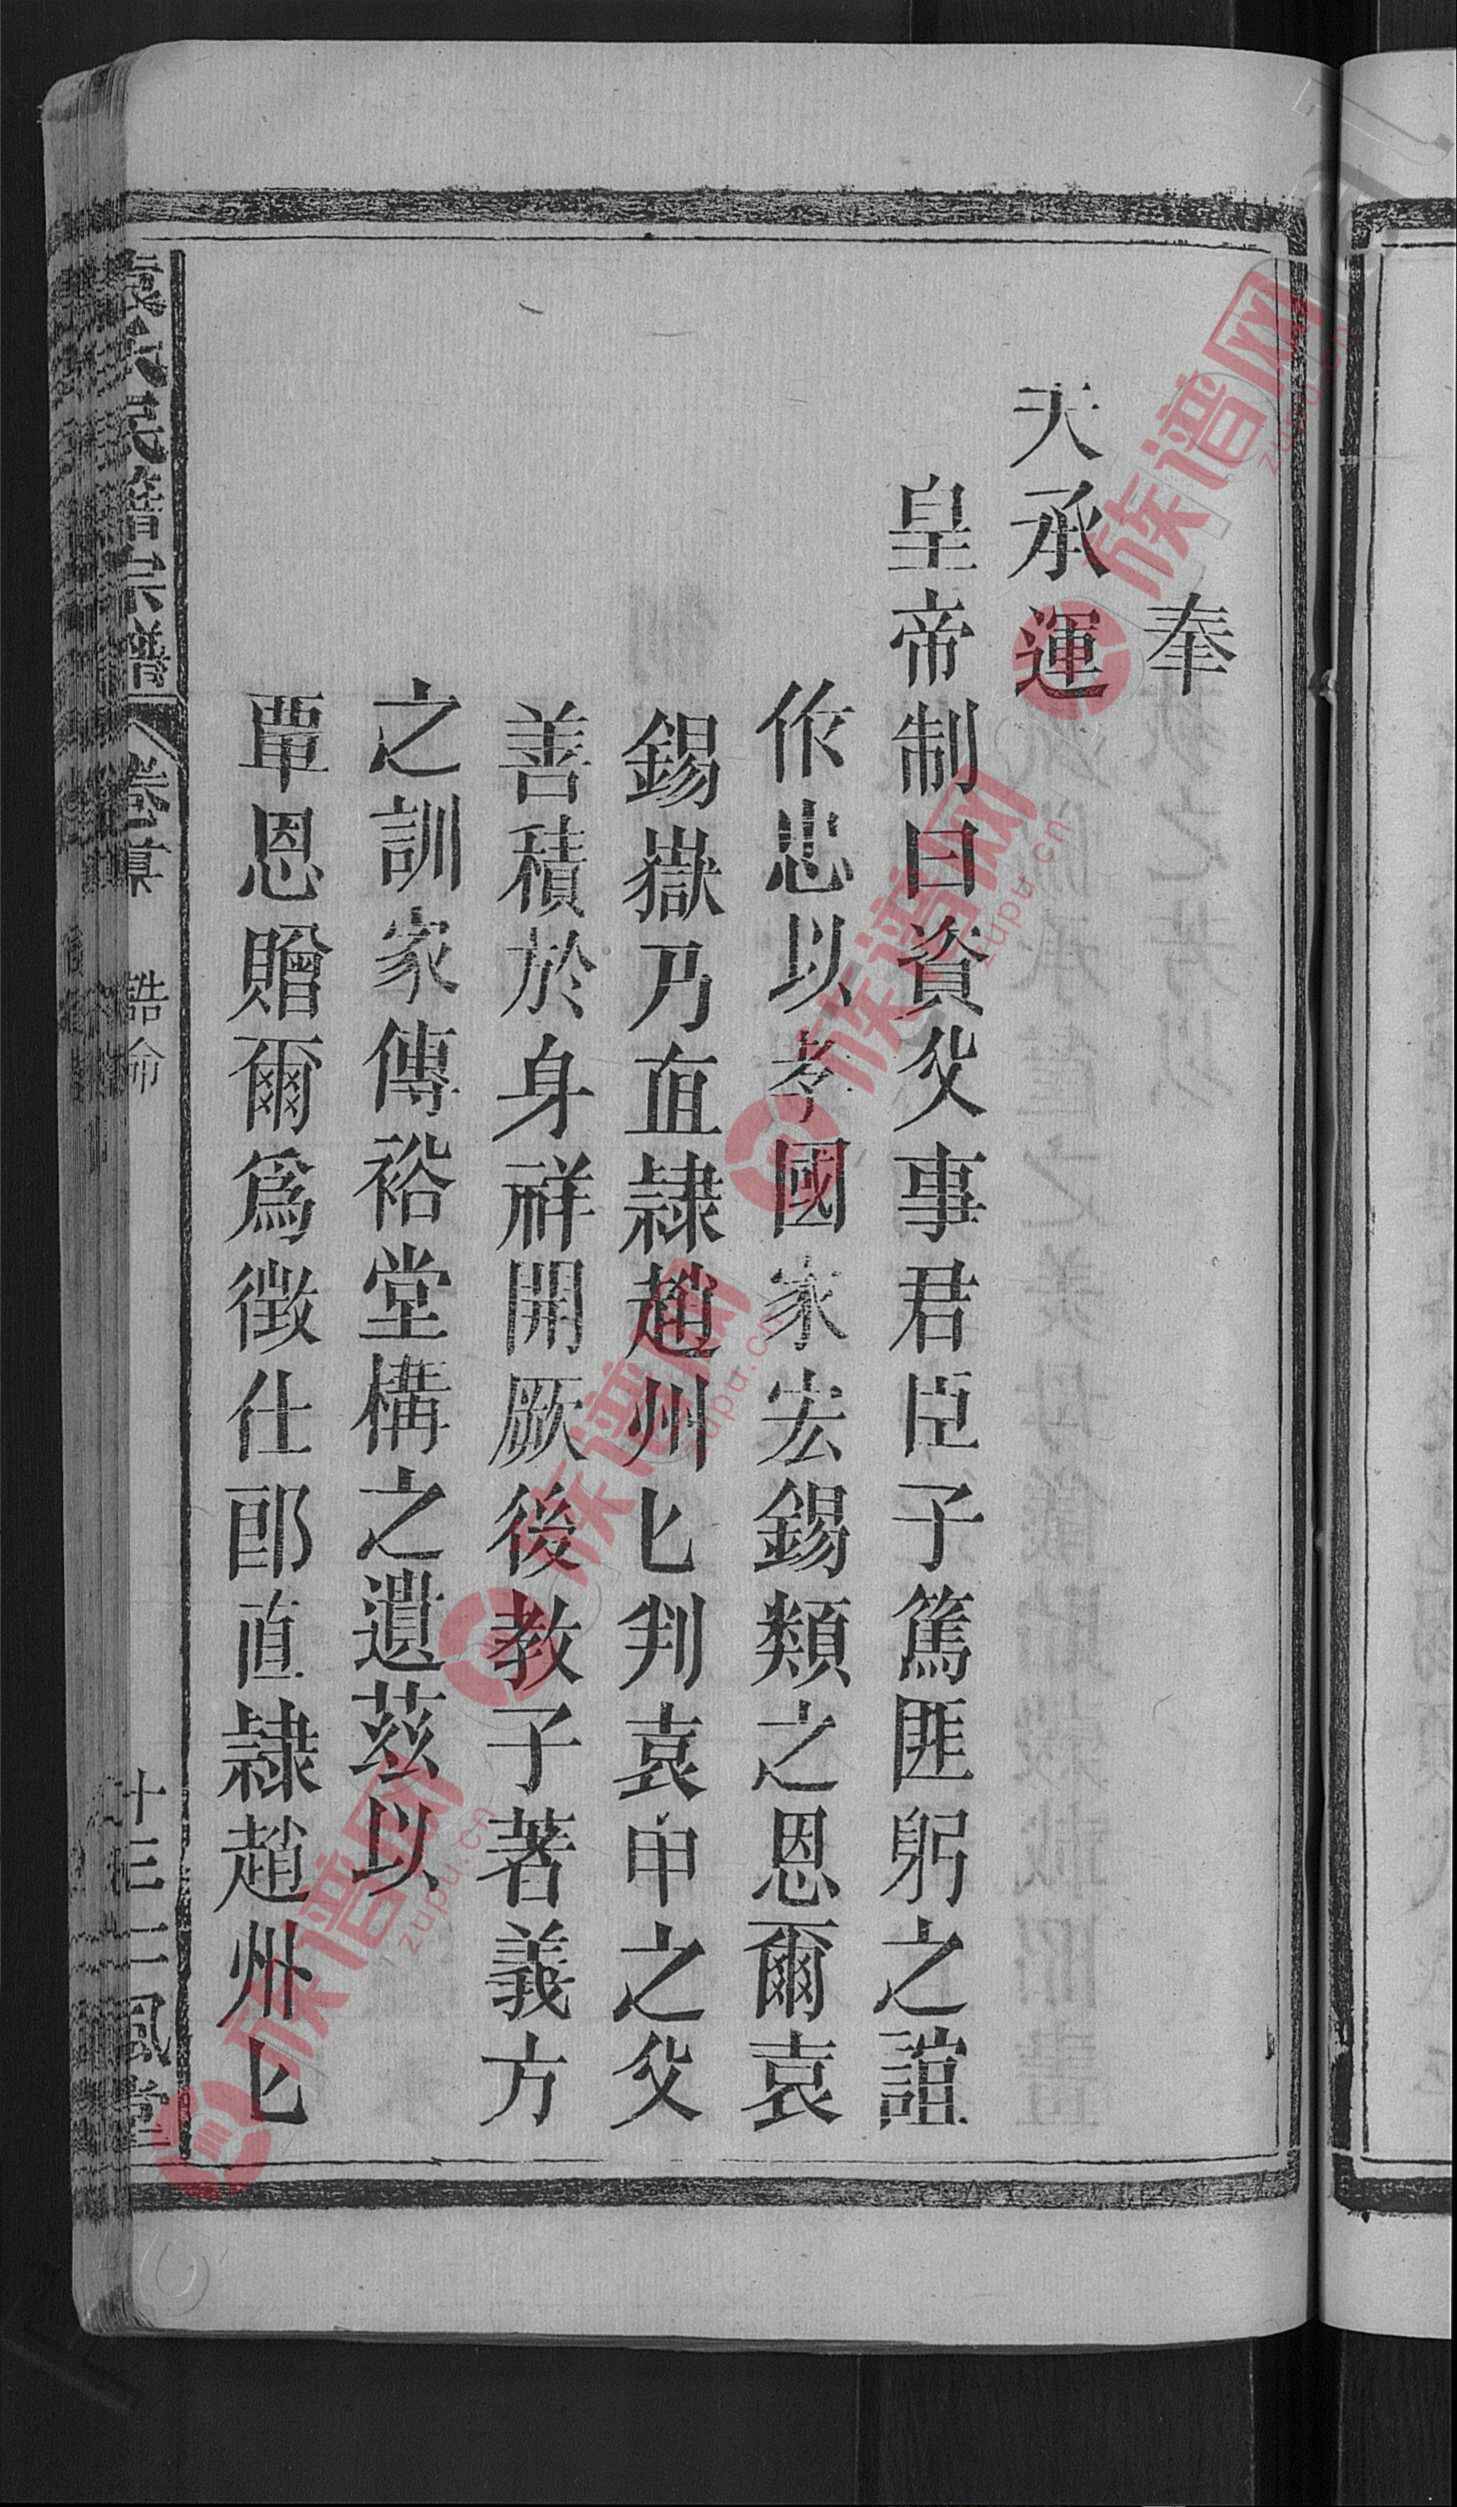 奉
天承運
皇帝制曰資父事君臣子篤匪躬之誼
作忠以孝國家宏錫類之恩爾袁
錫嶽乃直隸趙州匕判袁申之父
善積於身祥開厥後教子著義方
之訓家傳裕堂構之遺茲以
覃恩贈爾爲徵仕郎直隸趙州匕
氏譜宗譜
卷首
誥命
十三
三風堂
族谱网
zupu.cn
族谱网
zupu.cn
族谱网
zupu.cn
族谱网
zupu.cn